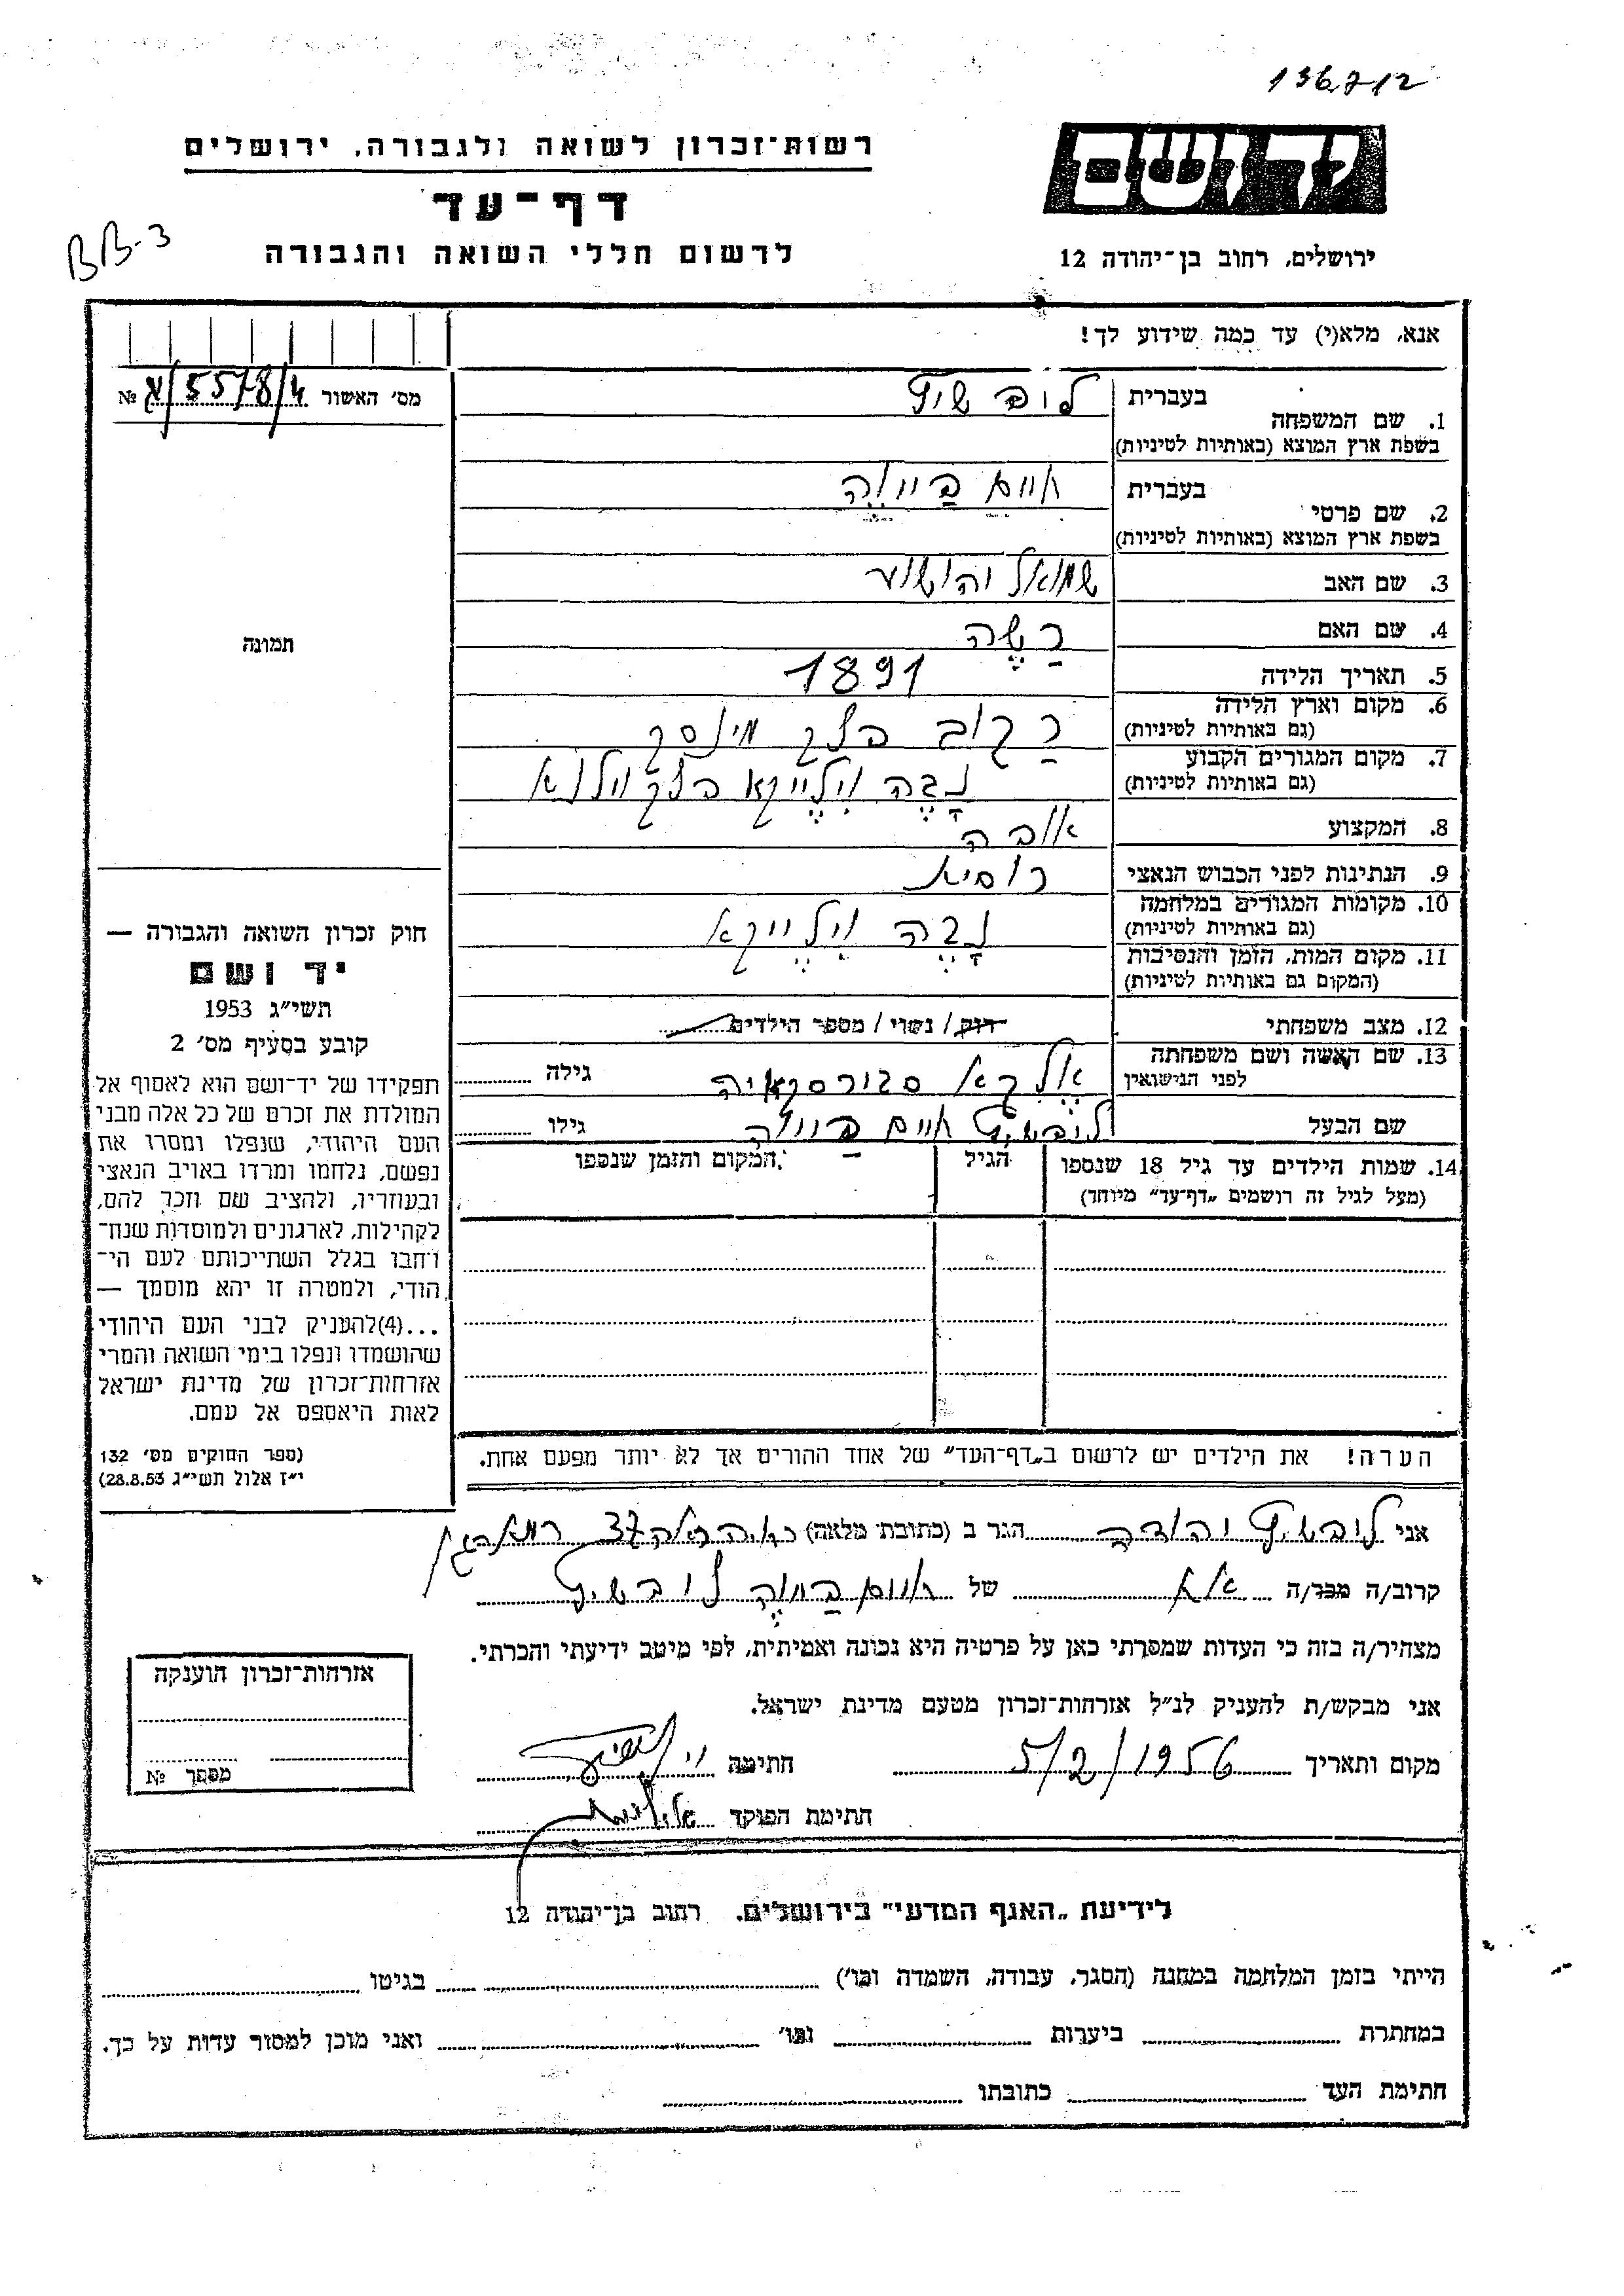 136712
רשות־זכרון לשואה ולגבורה, ירושלים
ידושם
דף־עד
BB-3
לרשום חללי השואה והגבורה
ירושלים, רחוב בן־יהודה 12
אנא, מלא(י) עד כמה שידוע לך!
מס' האשור 5578/4 №
1. שם המשפחה
בעברית לובשיץ
בשפת ארץ המוצא (באותיות לטיניות)
2. שם פרטי
בעברית חיים
בשפת ארץ המוצא (באותיות לטיניות)
3. שם האב שמואל יהושע
4. שם האם רַשֶה
תמונה
5. תאריך הלידה 1891
6. מקום וארץ הלידה רַקוב פלך מינסק
(גם באותיות לטיניות)
7. מקום המגורים הקבוע נָבֶה וִילֶייקא פלך וילנא
(גם באותיות לטיניות)
8. המקצוע אופה
9. הנתינות לפני הכבוש הנאצי רוסית
10. מקומות המגורים במלחמה נָבֶה וִילֶייקא
(גם באותיות לטיניות)
11. מקום המות, הזמן והנסיבות
(המקום גם באותיות לטיניות)
12. מצב משפחתי רוק / נשוי / מספר הילדים
13. שם האשה ושם משפחתה
לפני הנישואין
גילה
שם הבעל לובשיץ חיים גילו
14. שמות הילדים עד גיל 18 שנספו הגיל המקום והזמן שנספו
(מעל לגיל זה רושמים „דף־עד” מיוחד)
חוק זכרון השואה והגבורה —
יד ושם
תשי״ג 1953
קובע בסעיף מס' 2
תפקידו של יד־ושם הוא לאסוף אל
המולדת את זכרם של כל אלה מבני
העם היהודי, שנפלו ומסרו את
נפשם, נלחמו ומרדו באויב הנאצי
ובעוזריו, ולהציב שם וזכר להם,
לקהילות, לארגונים ולמוסדות שנח־
רחבו בגלל השתייכותם לעם הי־
הודי, ולמטרה זו יהא מוסמך —
...(4) להעניק לבני העם היהודי
שהושמדו ונפלו בימי השואה והמרי
אזרחות־זכרון של מדינת ישראל
לאות היאספם אל עמם.
(ספר החוקים מס' 132
י״ז אלול תשי״ג 28.8.53)
הערה! את הילדים יש לרשום ב„דף־העד” של אחד ההורים אך לא יותר מפעם אחת.
אני לובשיץ יהודה הגר ב (כתובת מלאה) 37 רמת־גן
קרוב/ה מכר/ה אח של חיים לובשיץ
מצהיר/ה בזה כי העדות שמסרתי כאן על פרטיה היא נכונה ואמיתית, לפי מיטב ידיעתי והכרתי.
אני מבקש/ת להעניק לנ״ל אזרחות־זכרון מטעם מדינת ישראל.
מקום ותאריך 5/2/1956 חתימה
חתימת הפוקד
אזרחות־זכרון הוענקה
מספר №
לידיעת „האגף המדעי” בירושלים, רחוב בן־יהודה 12
הייתי בזמן המלחמה במחנה (הסגר, עבודה, השמדה וכו') בגיטו
במחתרת ביערות וכו' ואני מוכן למסור עדות על כך.
חתימת העד כתובתו